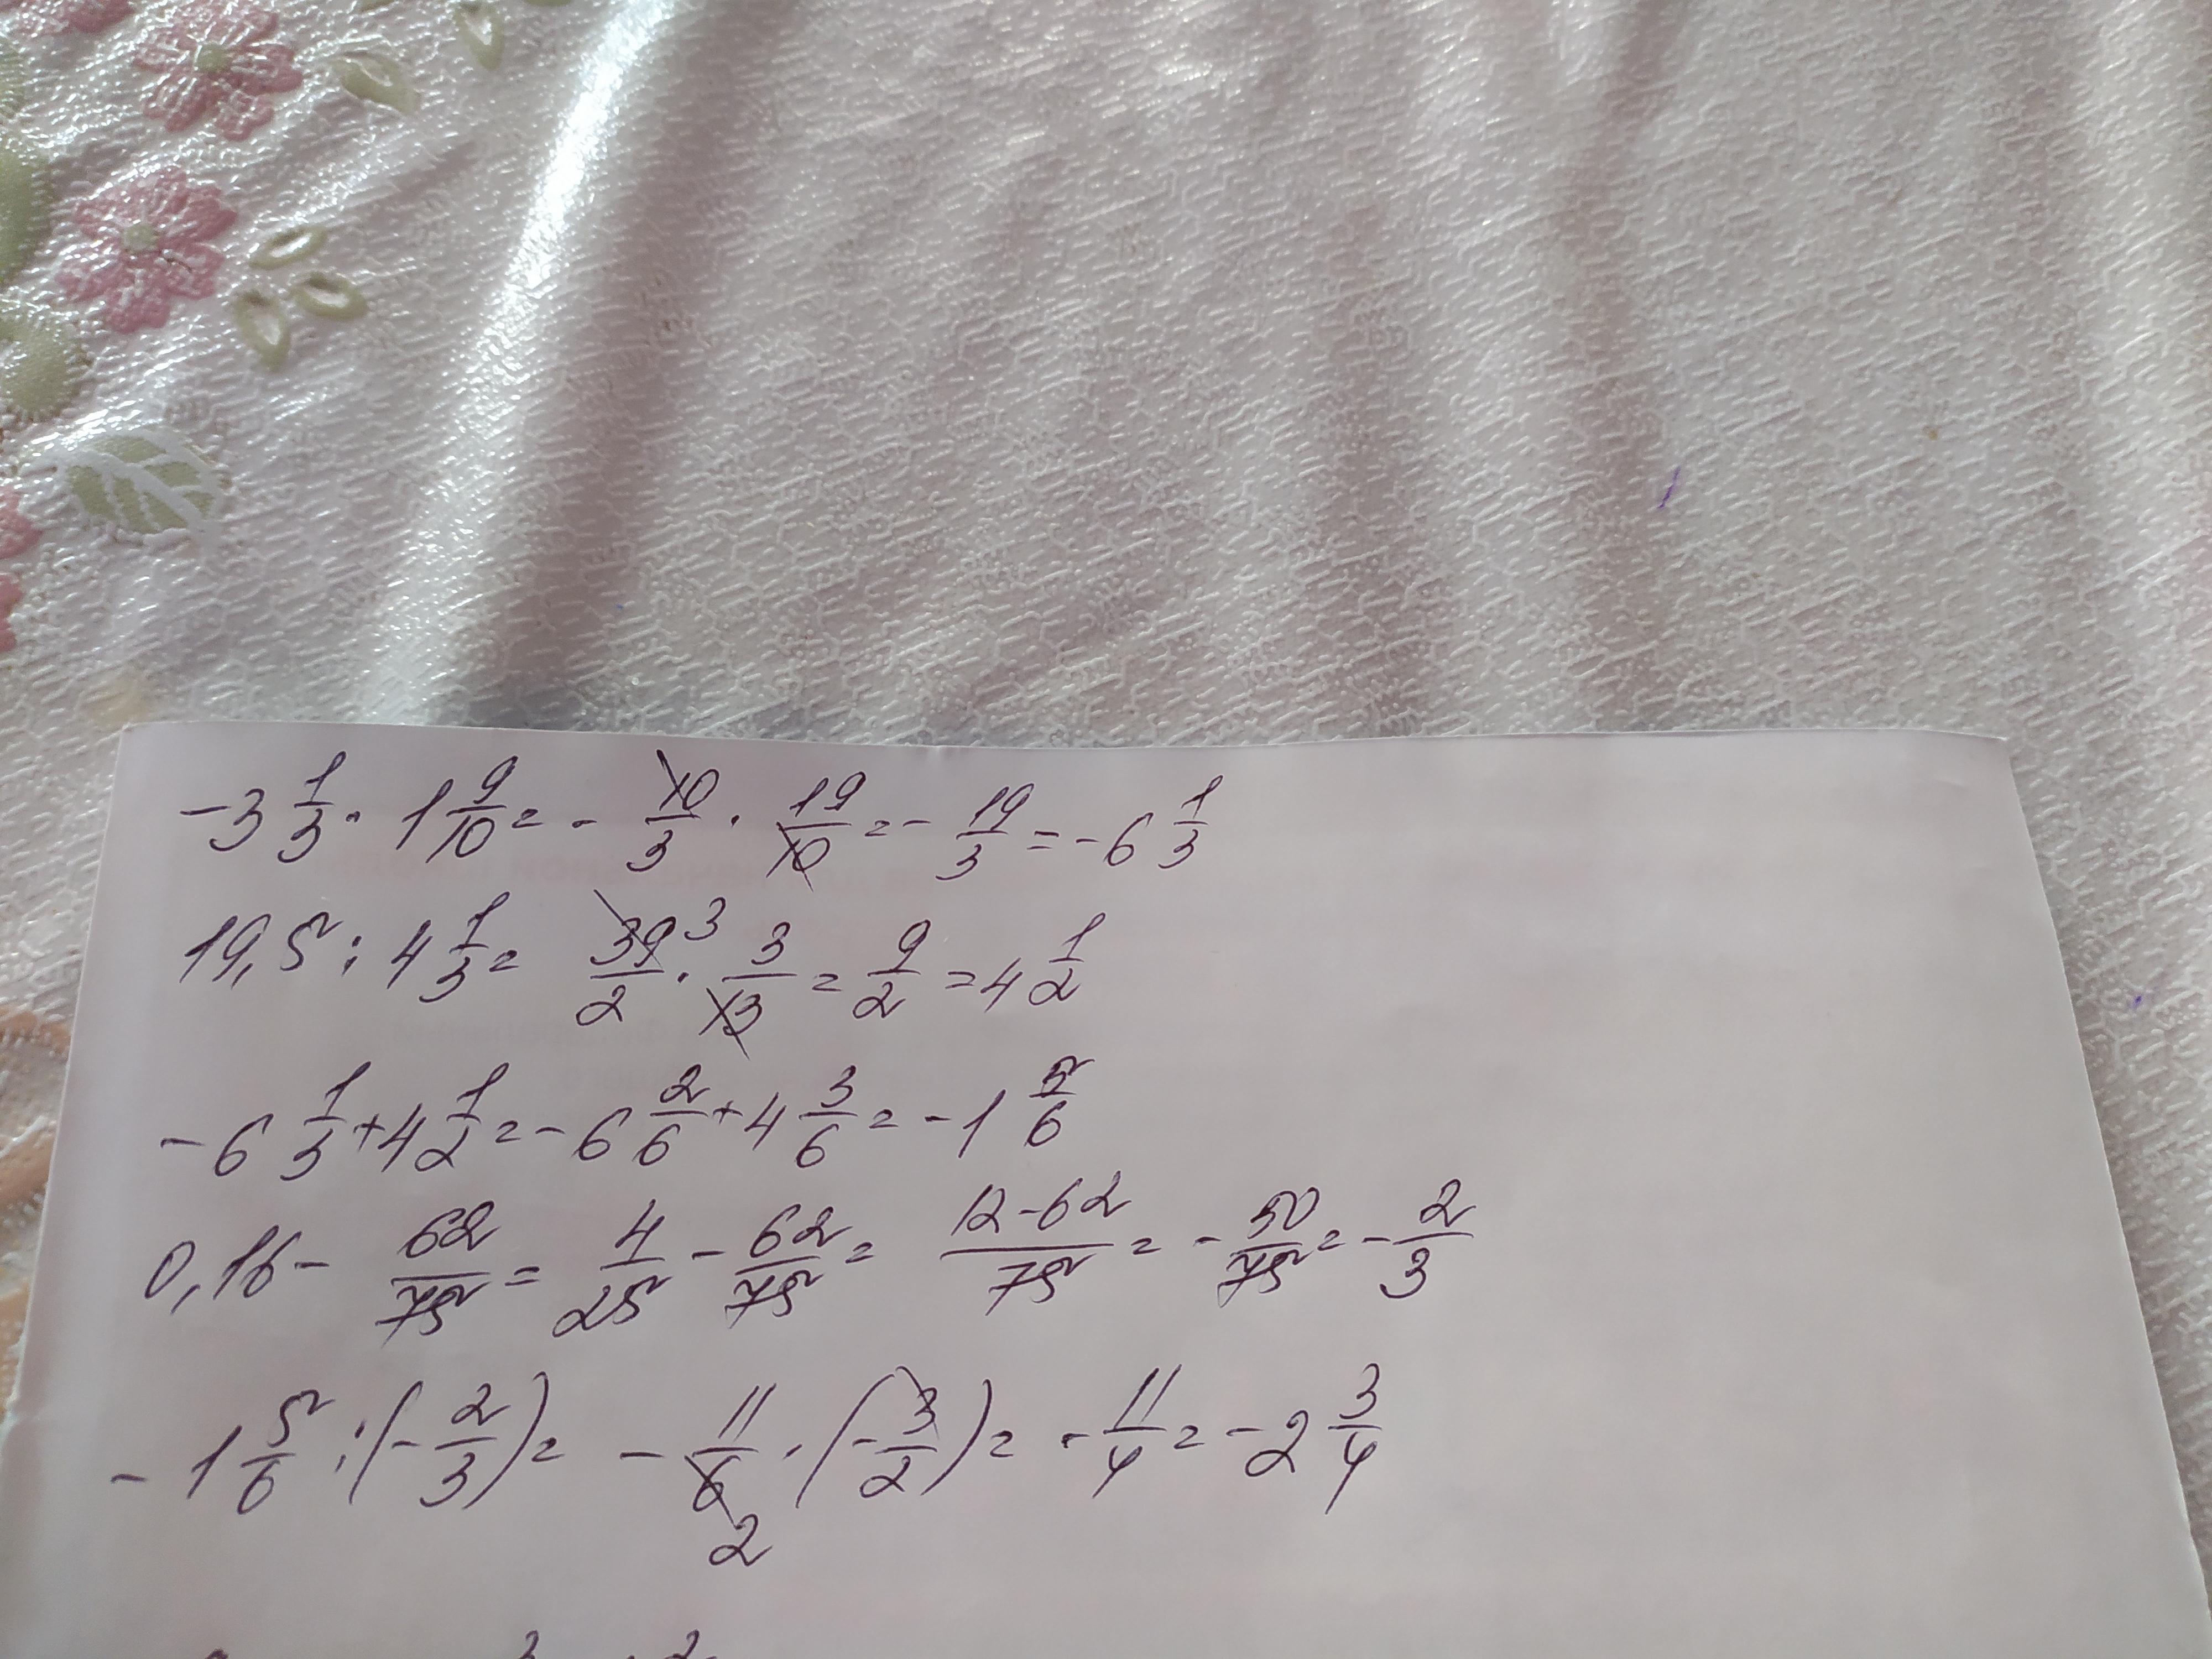 -3 1/3 · 1 9/10 = - 10/3 · 19/10 = - 19/3 = -6 1/3
19,5 : 4 1/3 = 39/2 3 · 3/13 = 9/2 = 4 1/2
-6 1/3 + 4 1/2 = -6 2/6 + 4 3/6 = -1 5/6
0,16 - 62/75 = 4/25 - 62/75 = 12-62/75 = - 50/75 = - 2/3
-1 5/6 : (- 2/3) = - 11/6 2 · (- 3/2) = - 11/4 = -2 3/4